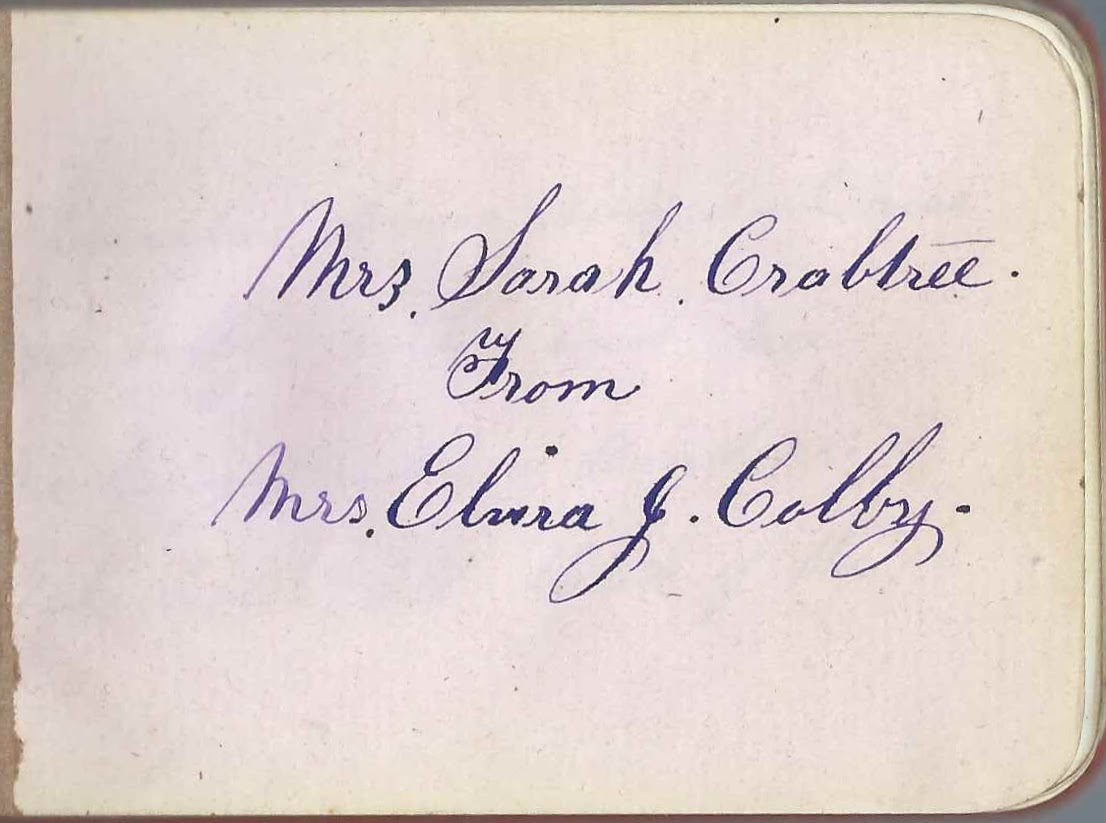 Mrs. Sarah Crabtree.
From
Mrs. Elvira J. Colby.